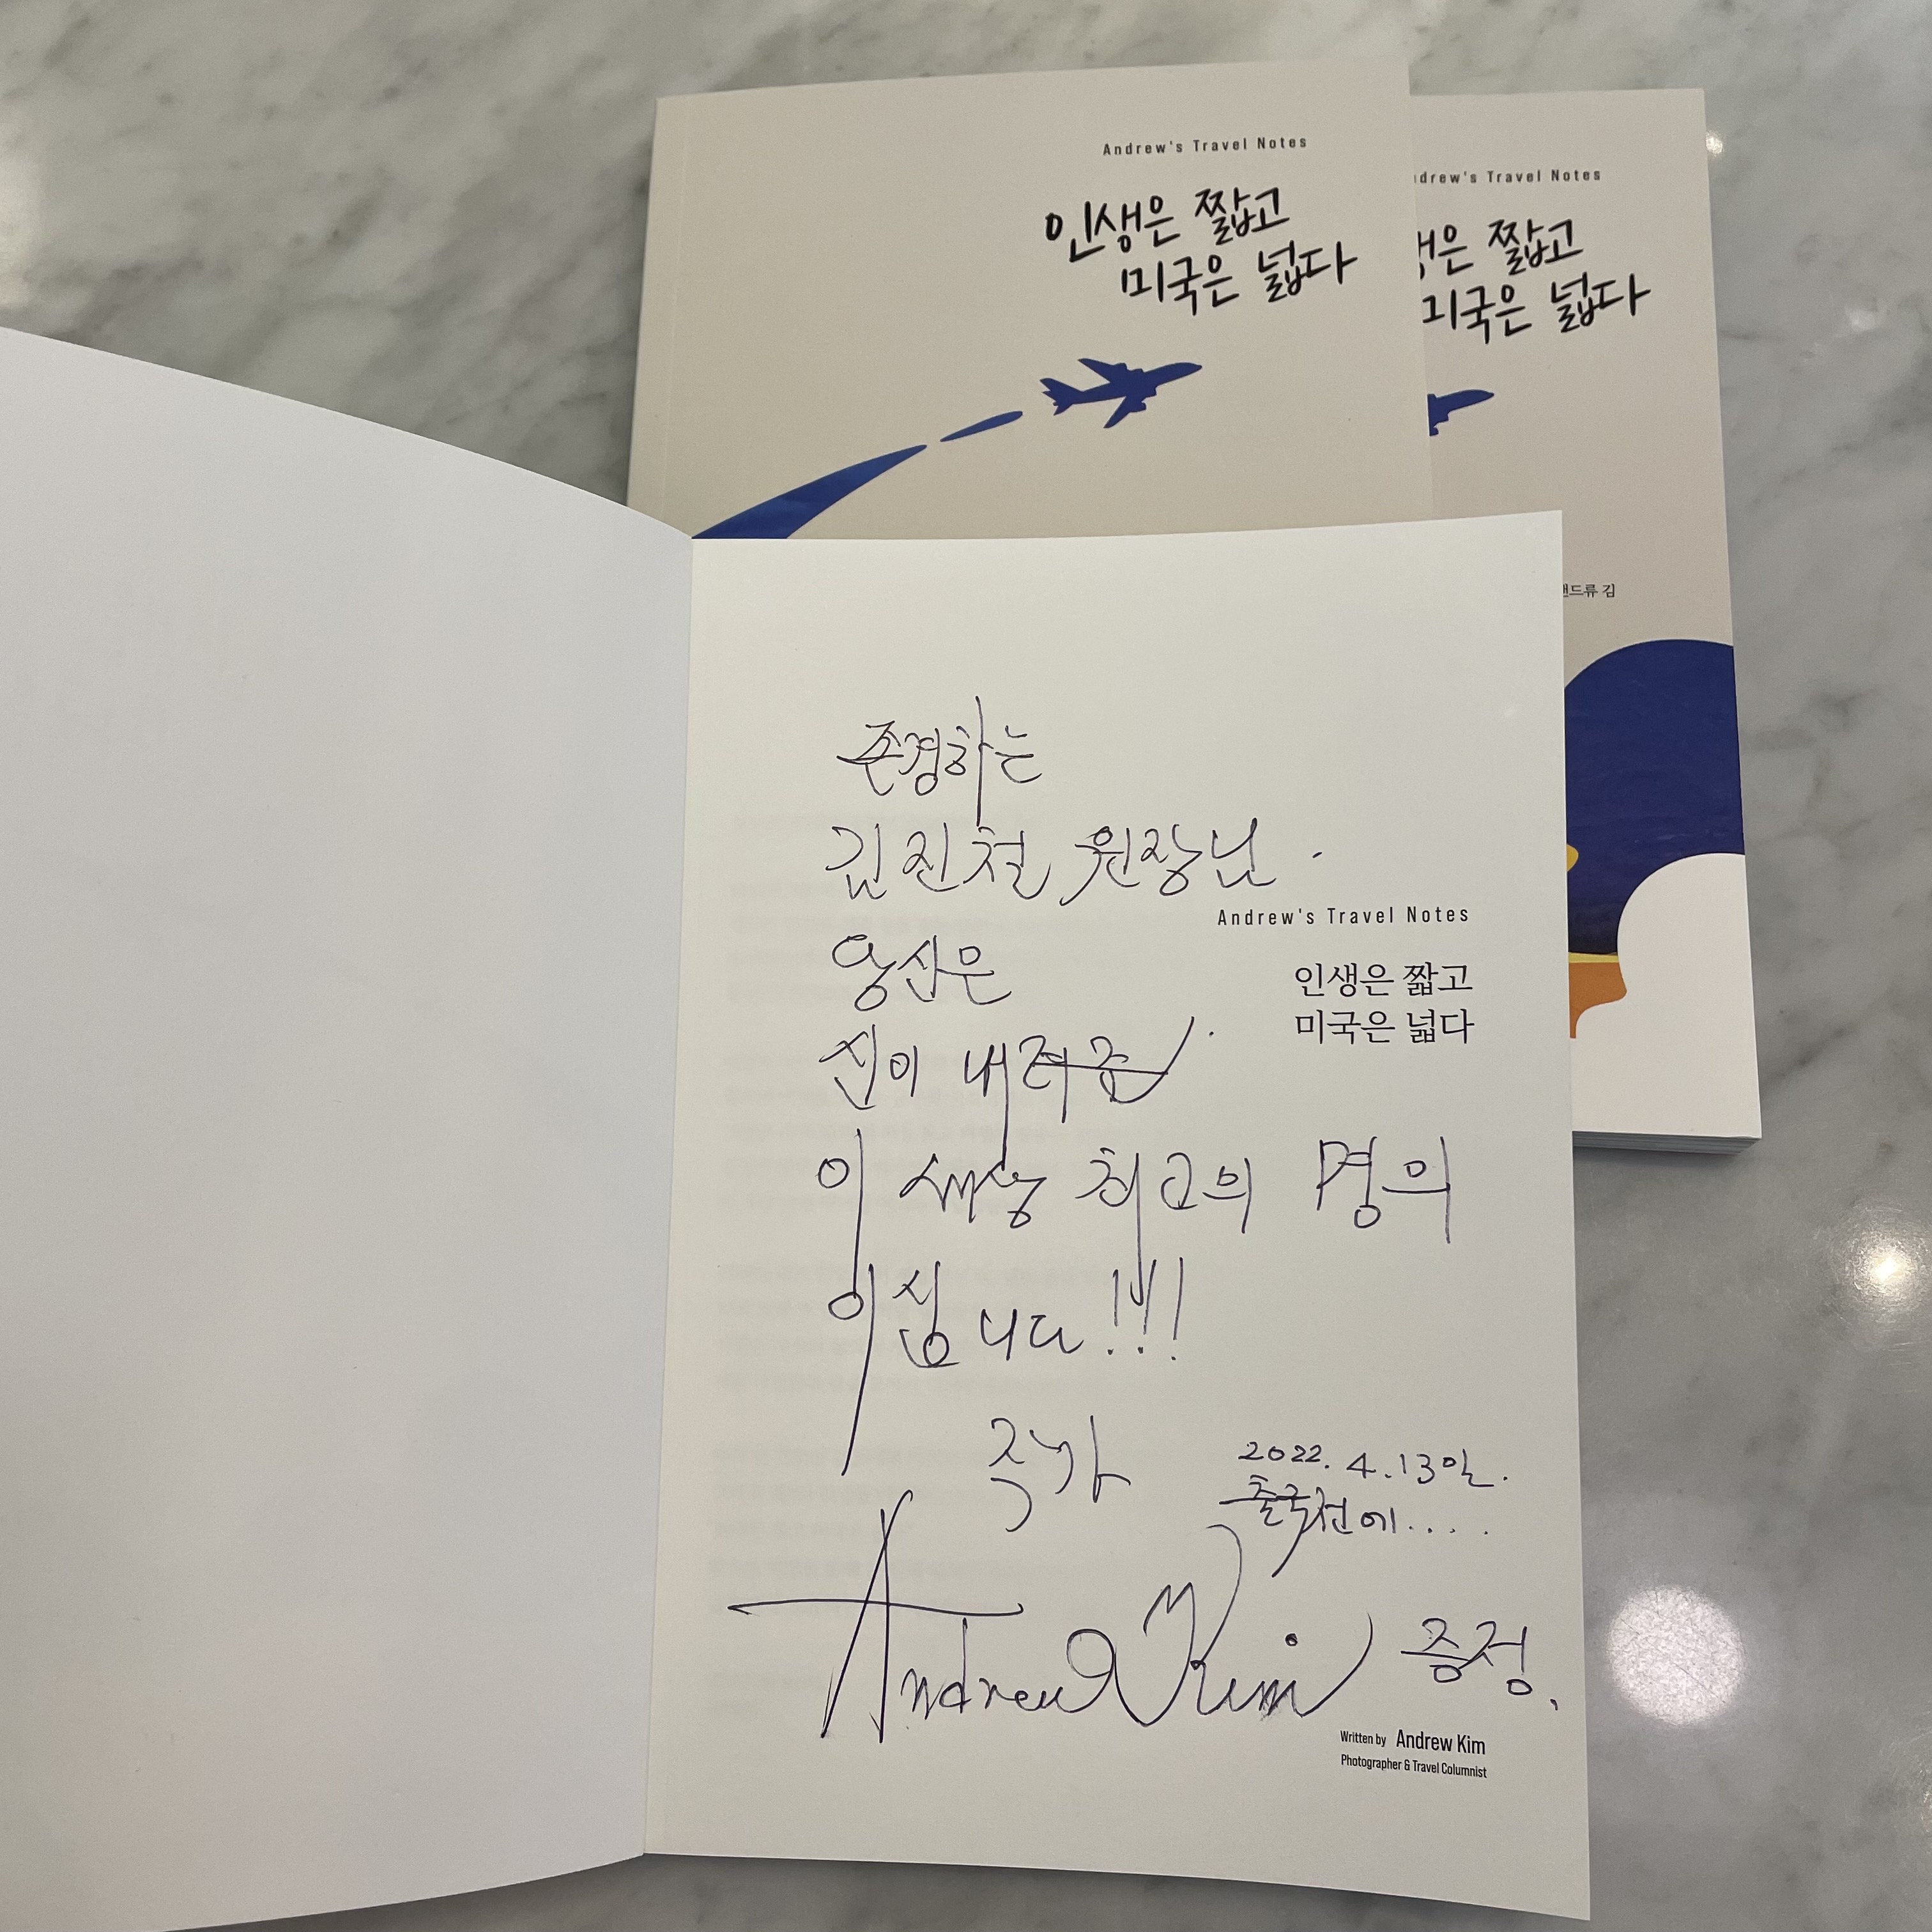 Andrew's Travel Notes
인생은 짧고
미국은 넓다
drew's Travel Notes
은 짧고
미국은 넓다
드류 김
존경하는
김진철 원장님.
Andrew's Travel Notes
인생은 짧고
미국은 넓다
신이 내려준
이 세상 최고의 명의
이십니다!!!
2022. 4. 13일.
출국전에....
Andrew Kim 증정.
Written by Andrew Kim
Photographer & Travel Columnist